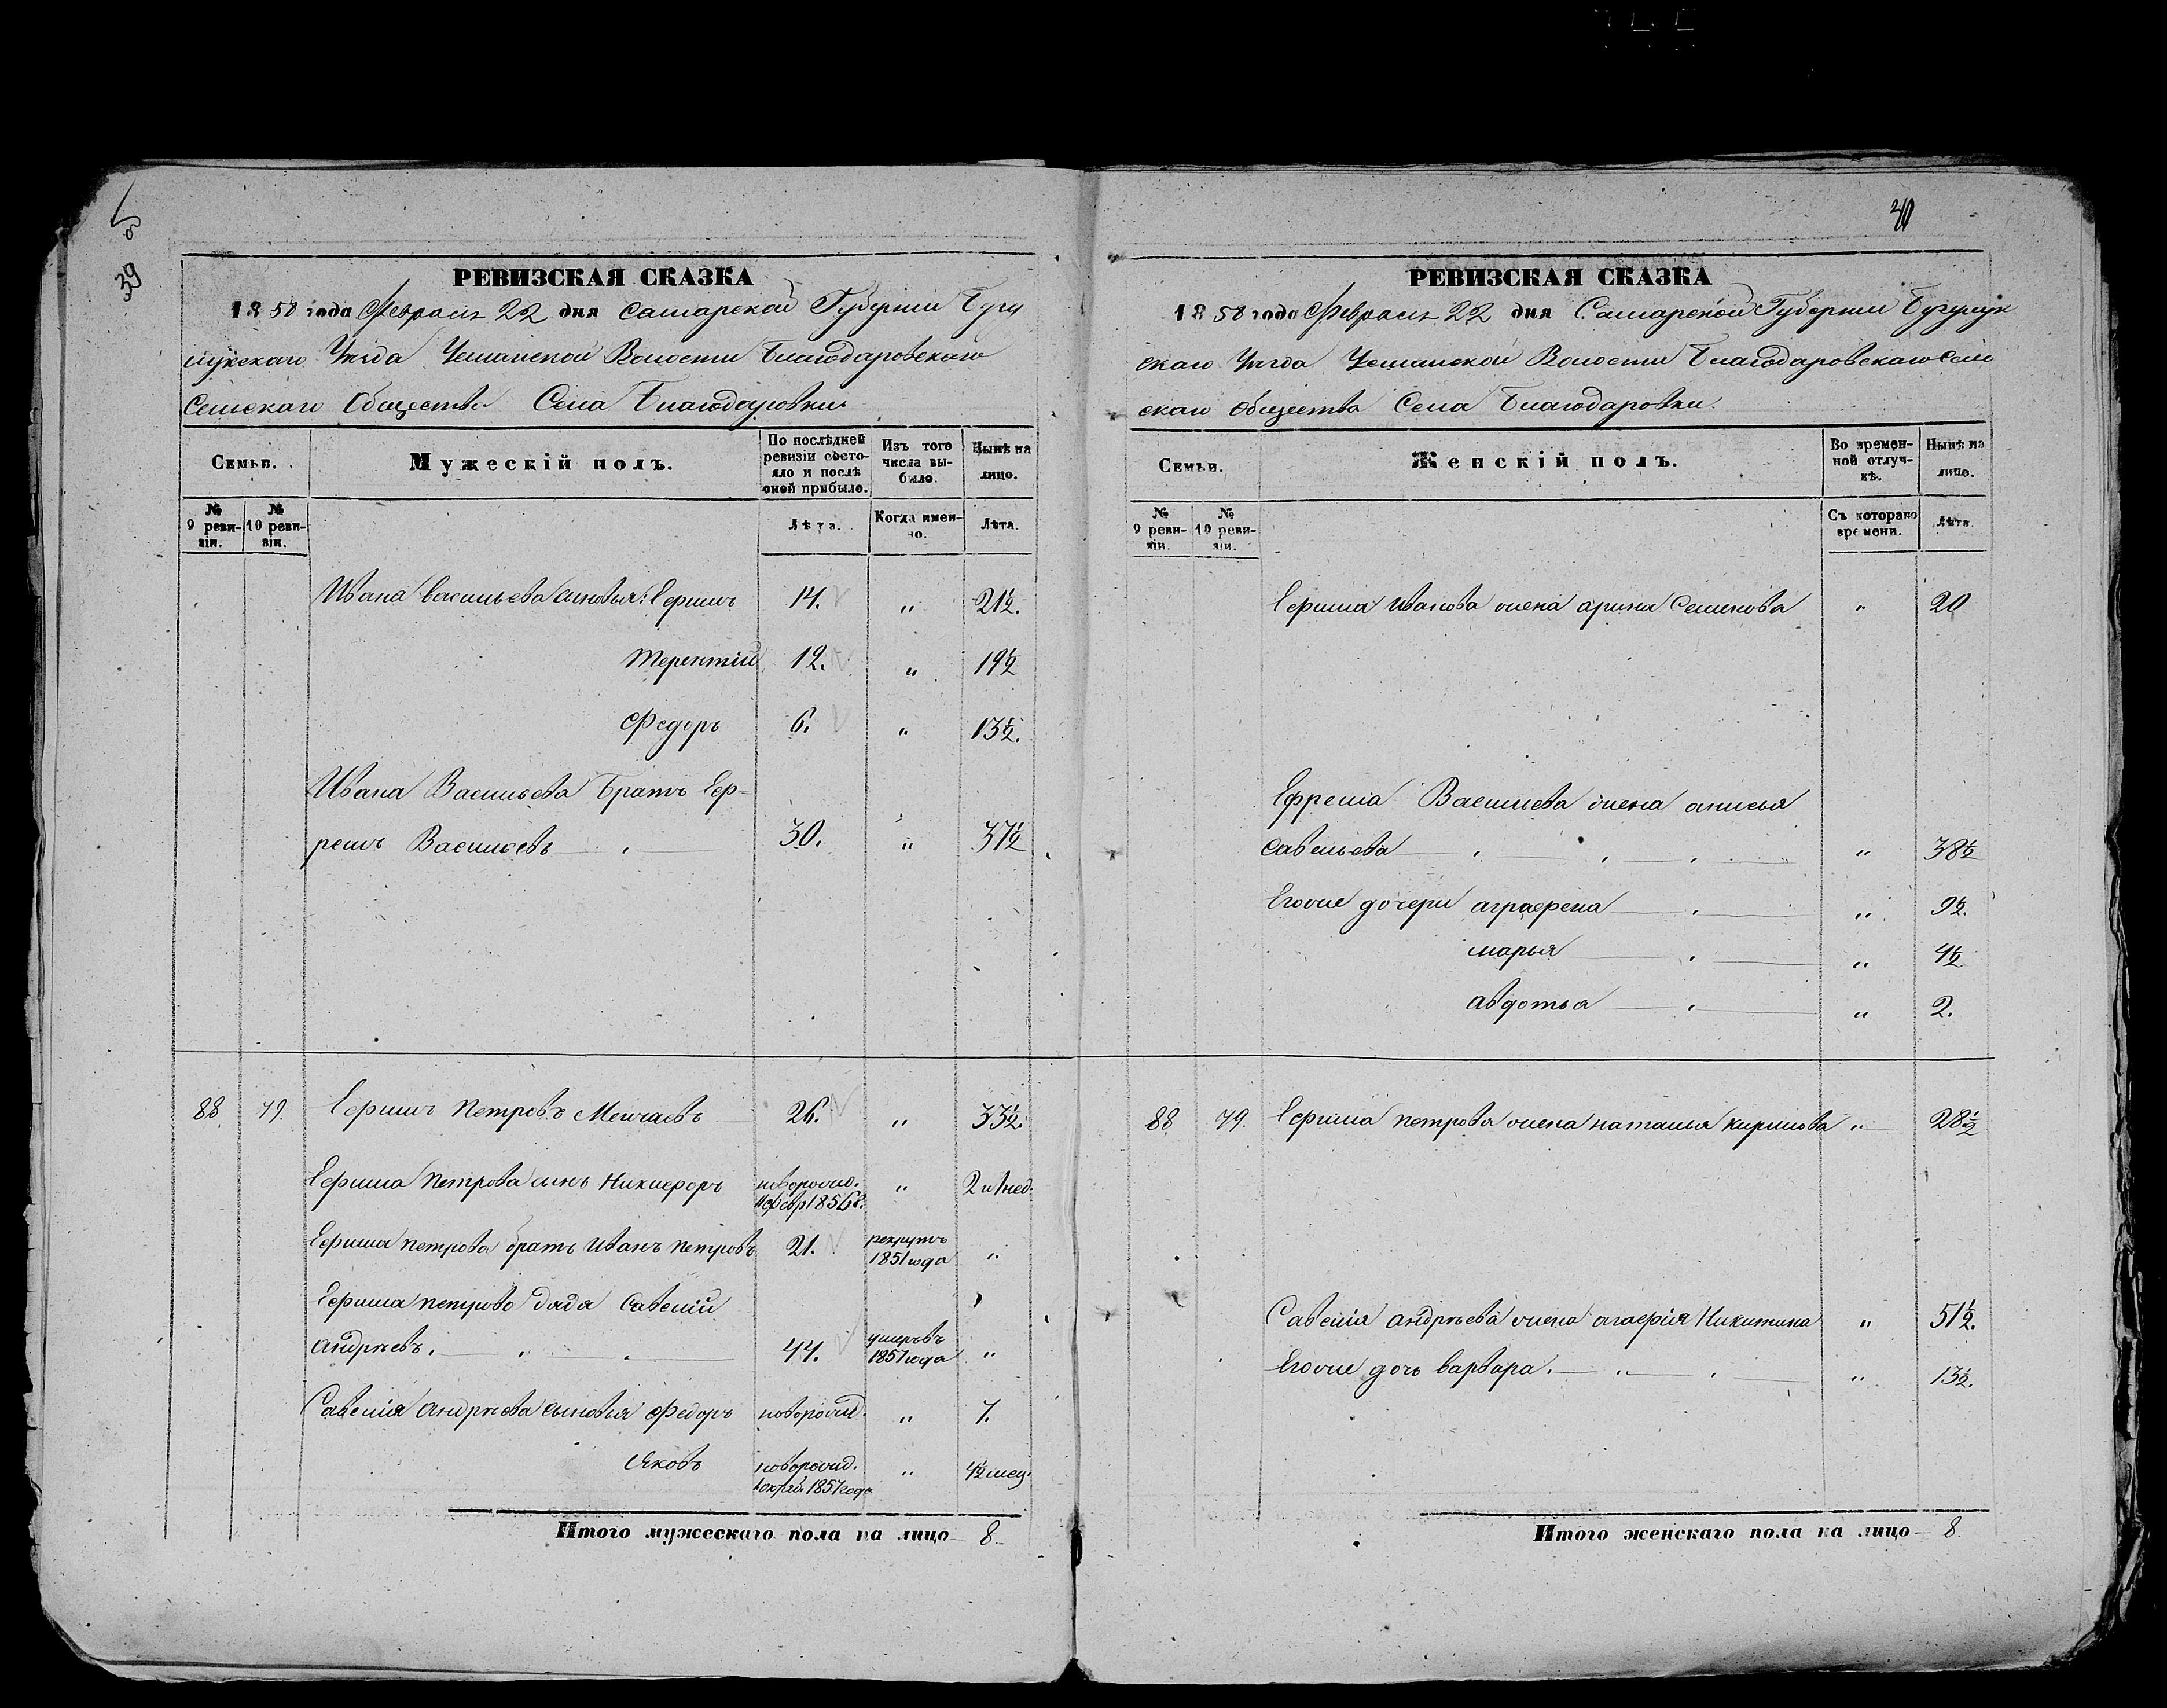 39
40
РЕВИЗСКАЯ СКАЗКА
1858 года Февраля 22 дня Самарской Губерніи Бугу
лукскаго Уѣзда Волости Благодаровскаго
Сельскаго Общества Села Благодаровки
Семьи.
Мужескій полъ.
По послѣдней ревизіи состояло и послѣ оной прибыло.
Изъ того числа выбыло.
Нынѣ на лицо.
№ 9 ревизіи.
№ 10 ревизіи.
Лѣта.
Когда именно.
Лѣта.
Ивана Васильева сыновья: Ефимъ 14. " 21½.
Терентій 12. " 19½
Федоръ 6. " 13½.
Ивана Васильева Братъ Еф-
ремъ Васильевъ 30. " 37½
88 79. Ефимъ Петровъ 26. " 33½.
Ефима Петрова сынъ Никифоръ новорожд. февр 1856 г. " 2 и 1 нед.
Ефима Петрова братъ Иванъ Петровъ 21. рекрутъ 1851 года "
Ефима Петрова дядя Савелій
Андрѣевъ. 44. умеръ въ 1857 года "
Савелія Андрѣева сыновья Федоръ новорожд. " 7.
Яковъ новорожд. 1857 года " 4½ мец.
Итого мужескаго пола на лицо 8.
РЕВИЗСКАЯ СКАЗКА
1858 года Февраля 22 дня Самарской Губерніи Бугулук
скаго Уѣзда Волости Благодаровскаго Сель
скаго Общества Села Благодаровки.
Семьи.
Женскій полъ.
Во временной отлучкѣ.
Нынѣ на лицо.
№ 9 ревизіи.
№ 10 ревизіи.
Съ котораго времени.
Лѣта.
Ефима Иванова жена Арина Семенова " 20
Ефрема Васильева жена Анисья
Савельева " 38½
Егоже дочери Аграфена " 9½.
Марья " 4½
Авдотья " 2.
88 79. Ефима Петрова жена Наталья Кирилова " 28½
Савелія Андрѣева жена Агафія Никитина " 51½.
Егоже дочь Варвара. " 13½.
Итого женскаго пола на лицо 8.